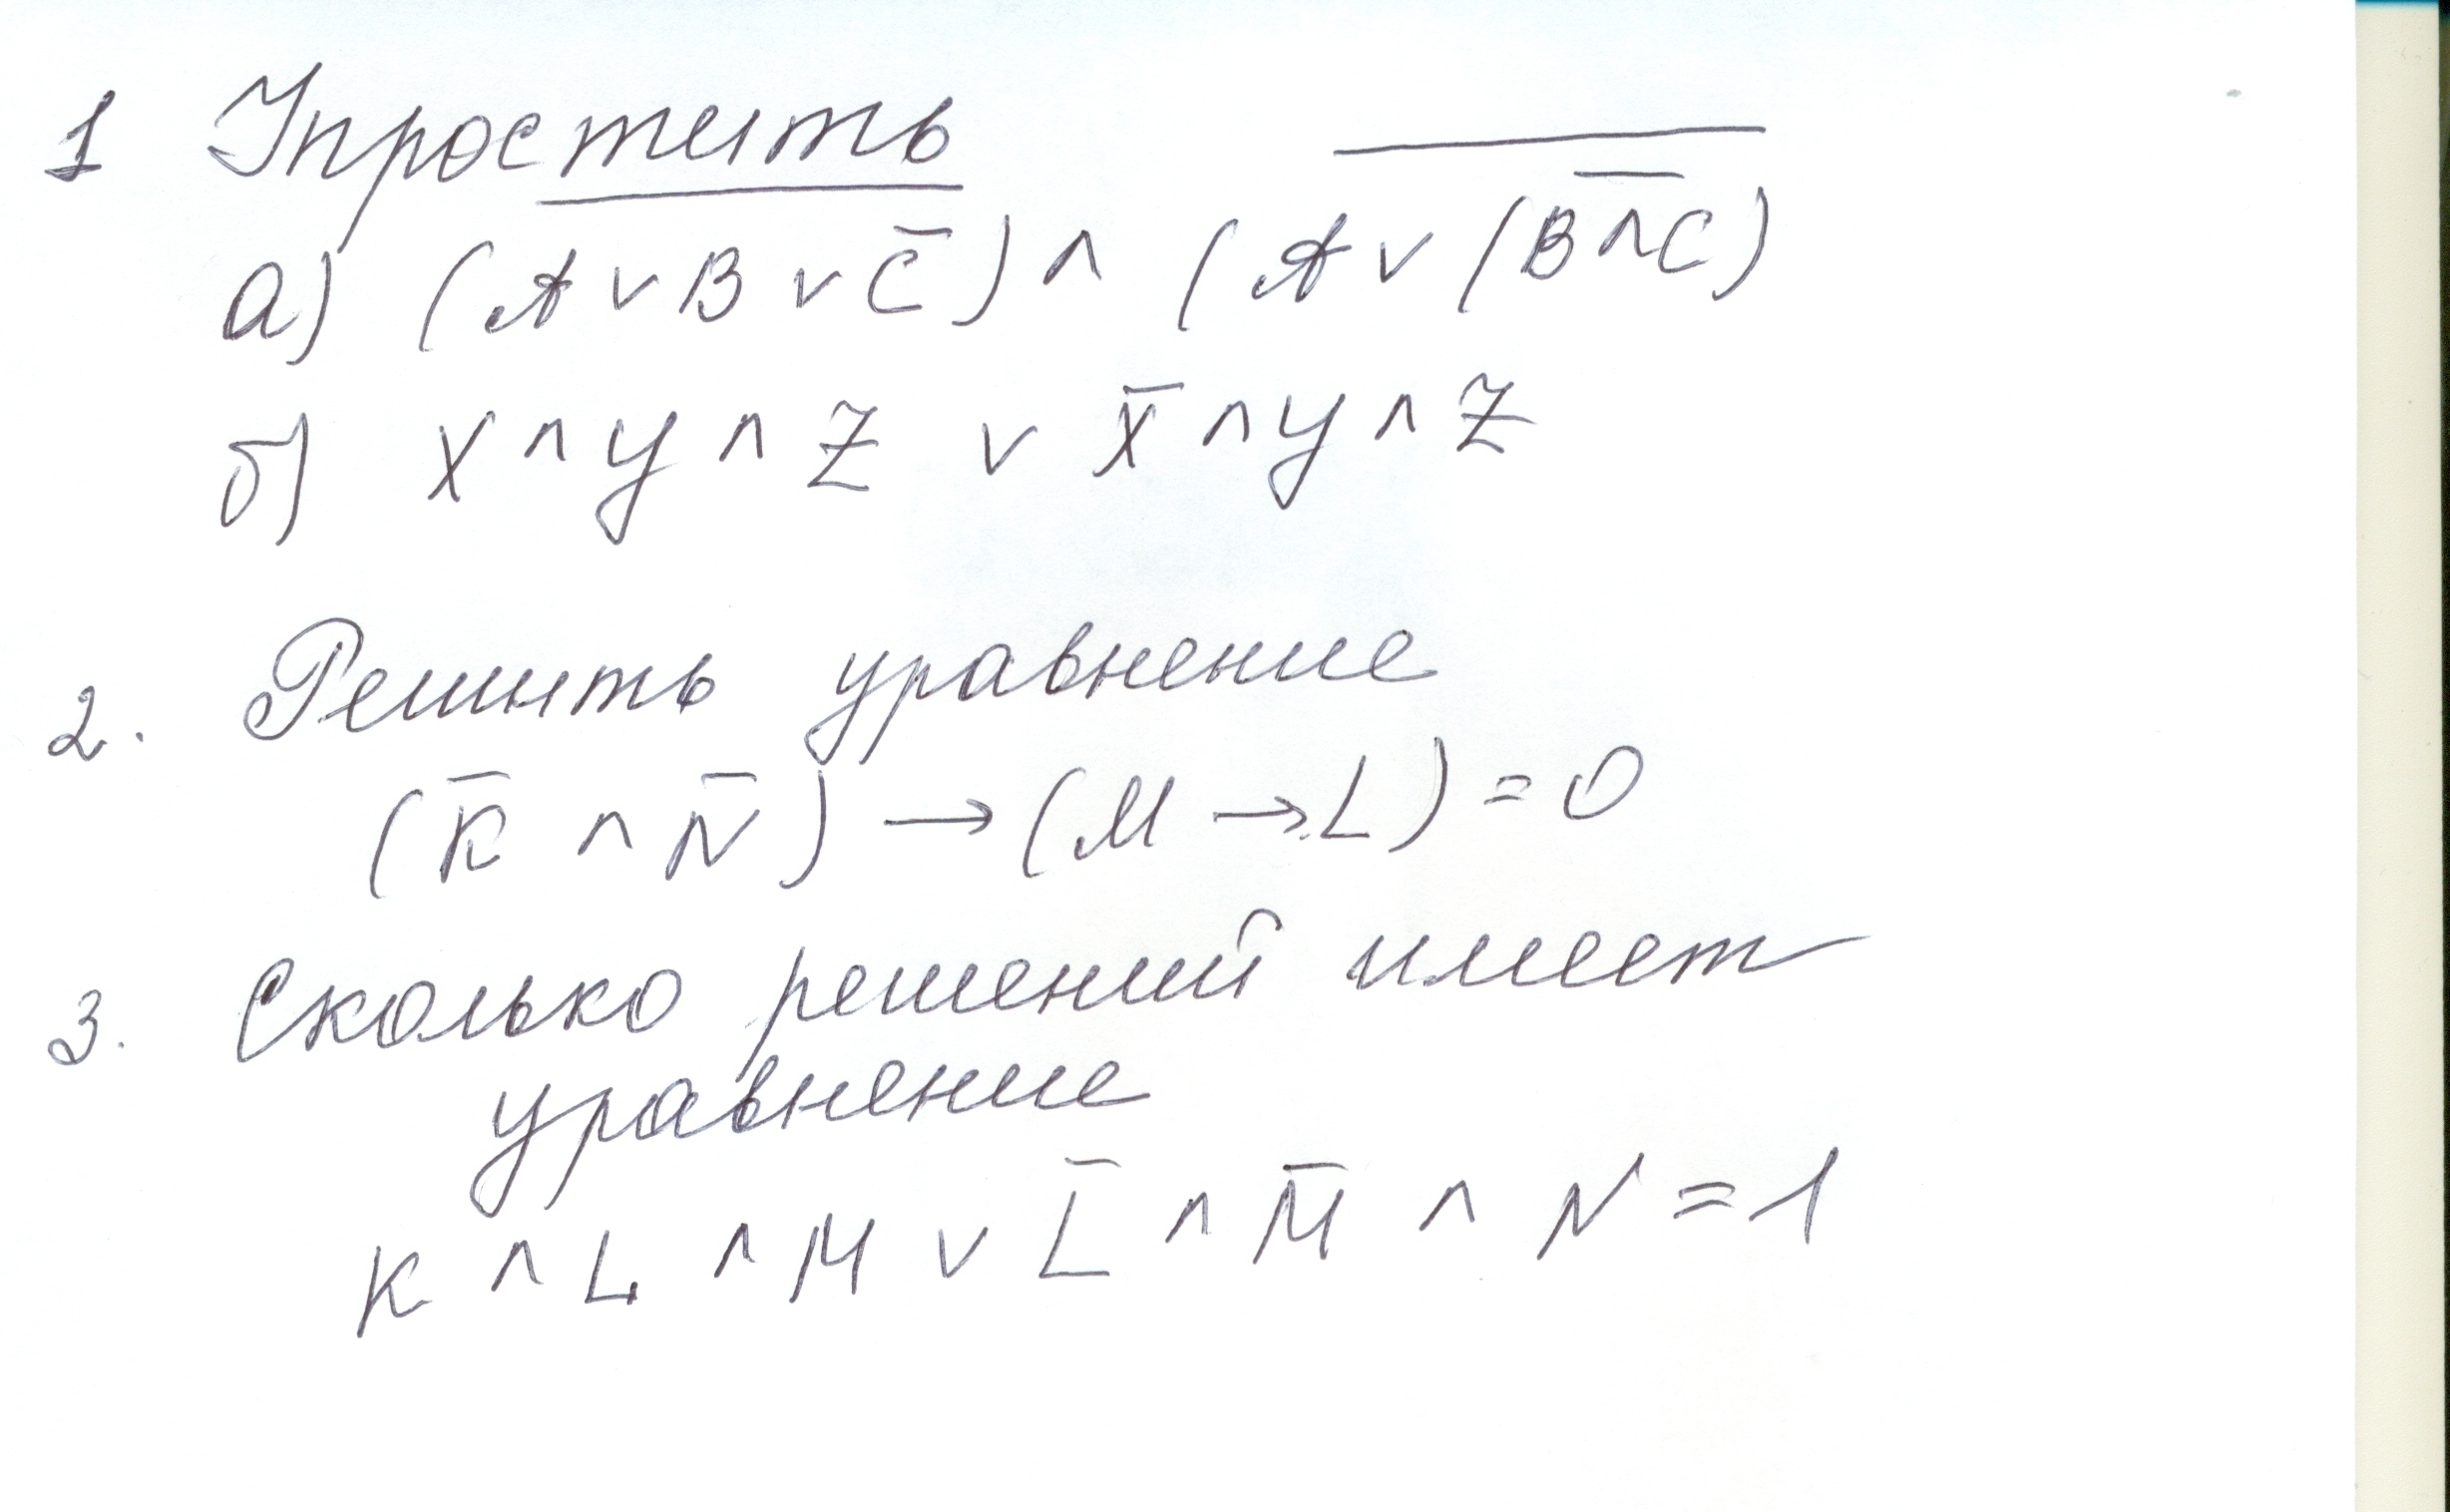 1 Упростить
а) (A ∨ B ∨ C̅) ∧ (̅A̅ ̅∨̅ ̅(̅B̅ ̅∧̅ ̅C̅)̅
б) X ∧ Y ∧ Z ∨ X̅ ∧ Y ∧ Z
2. Решить уравнение
(K̅ ∧ N̅) → (M → L) = 0
3. Сколько решений имеет
уравнение
K ∧ L ∧ M ∨ L̅ ∧ M̅ ∧ N = 1